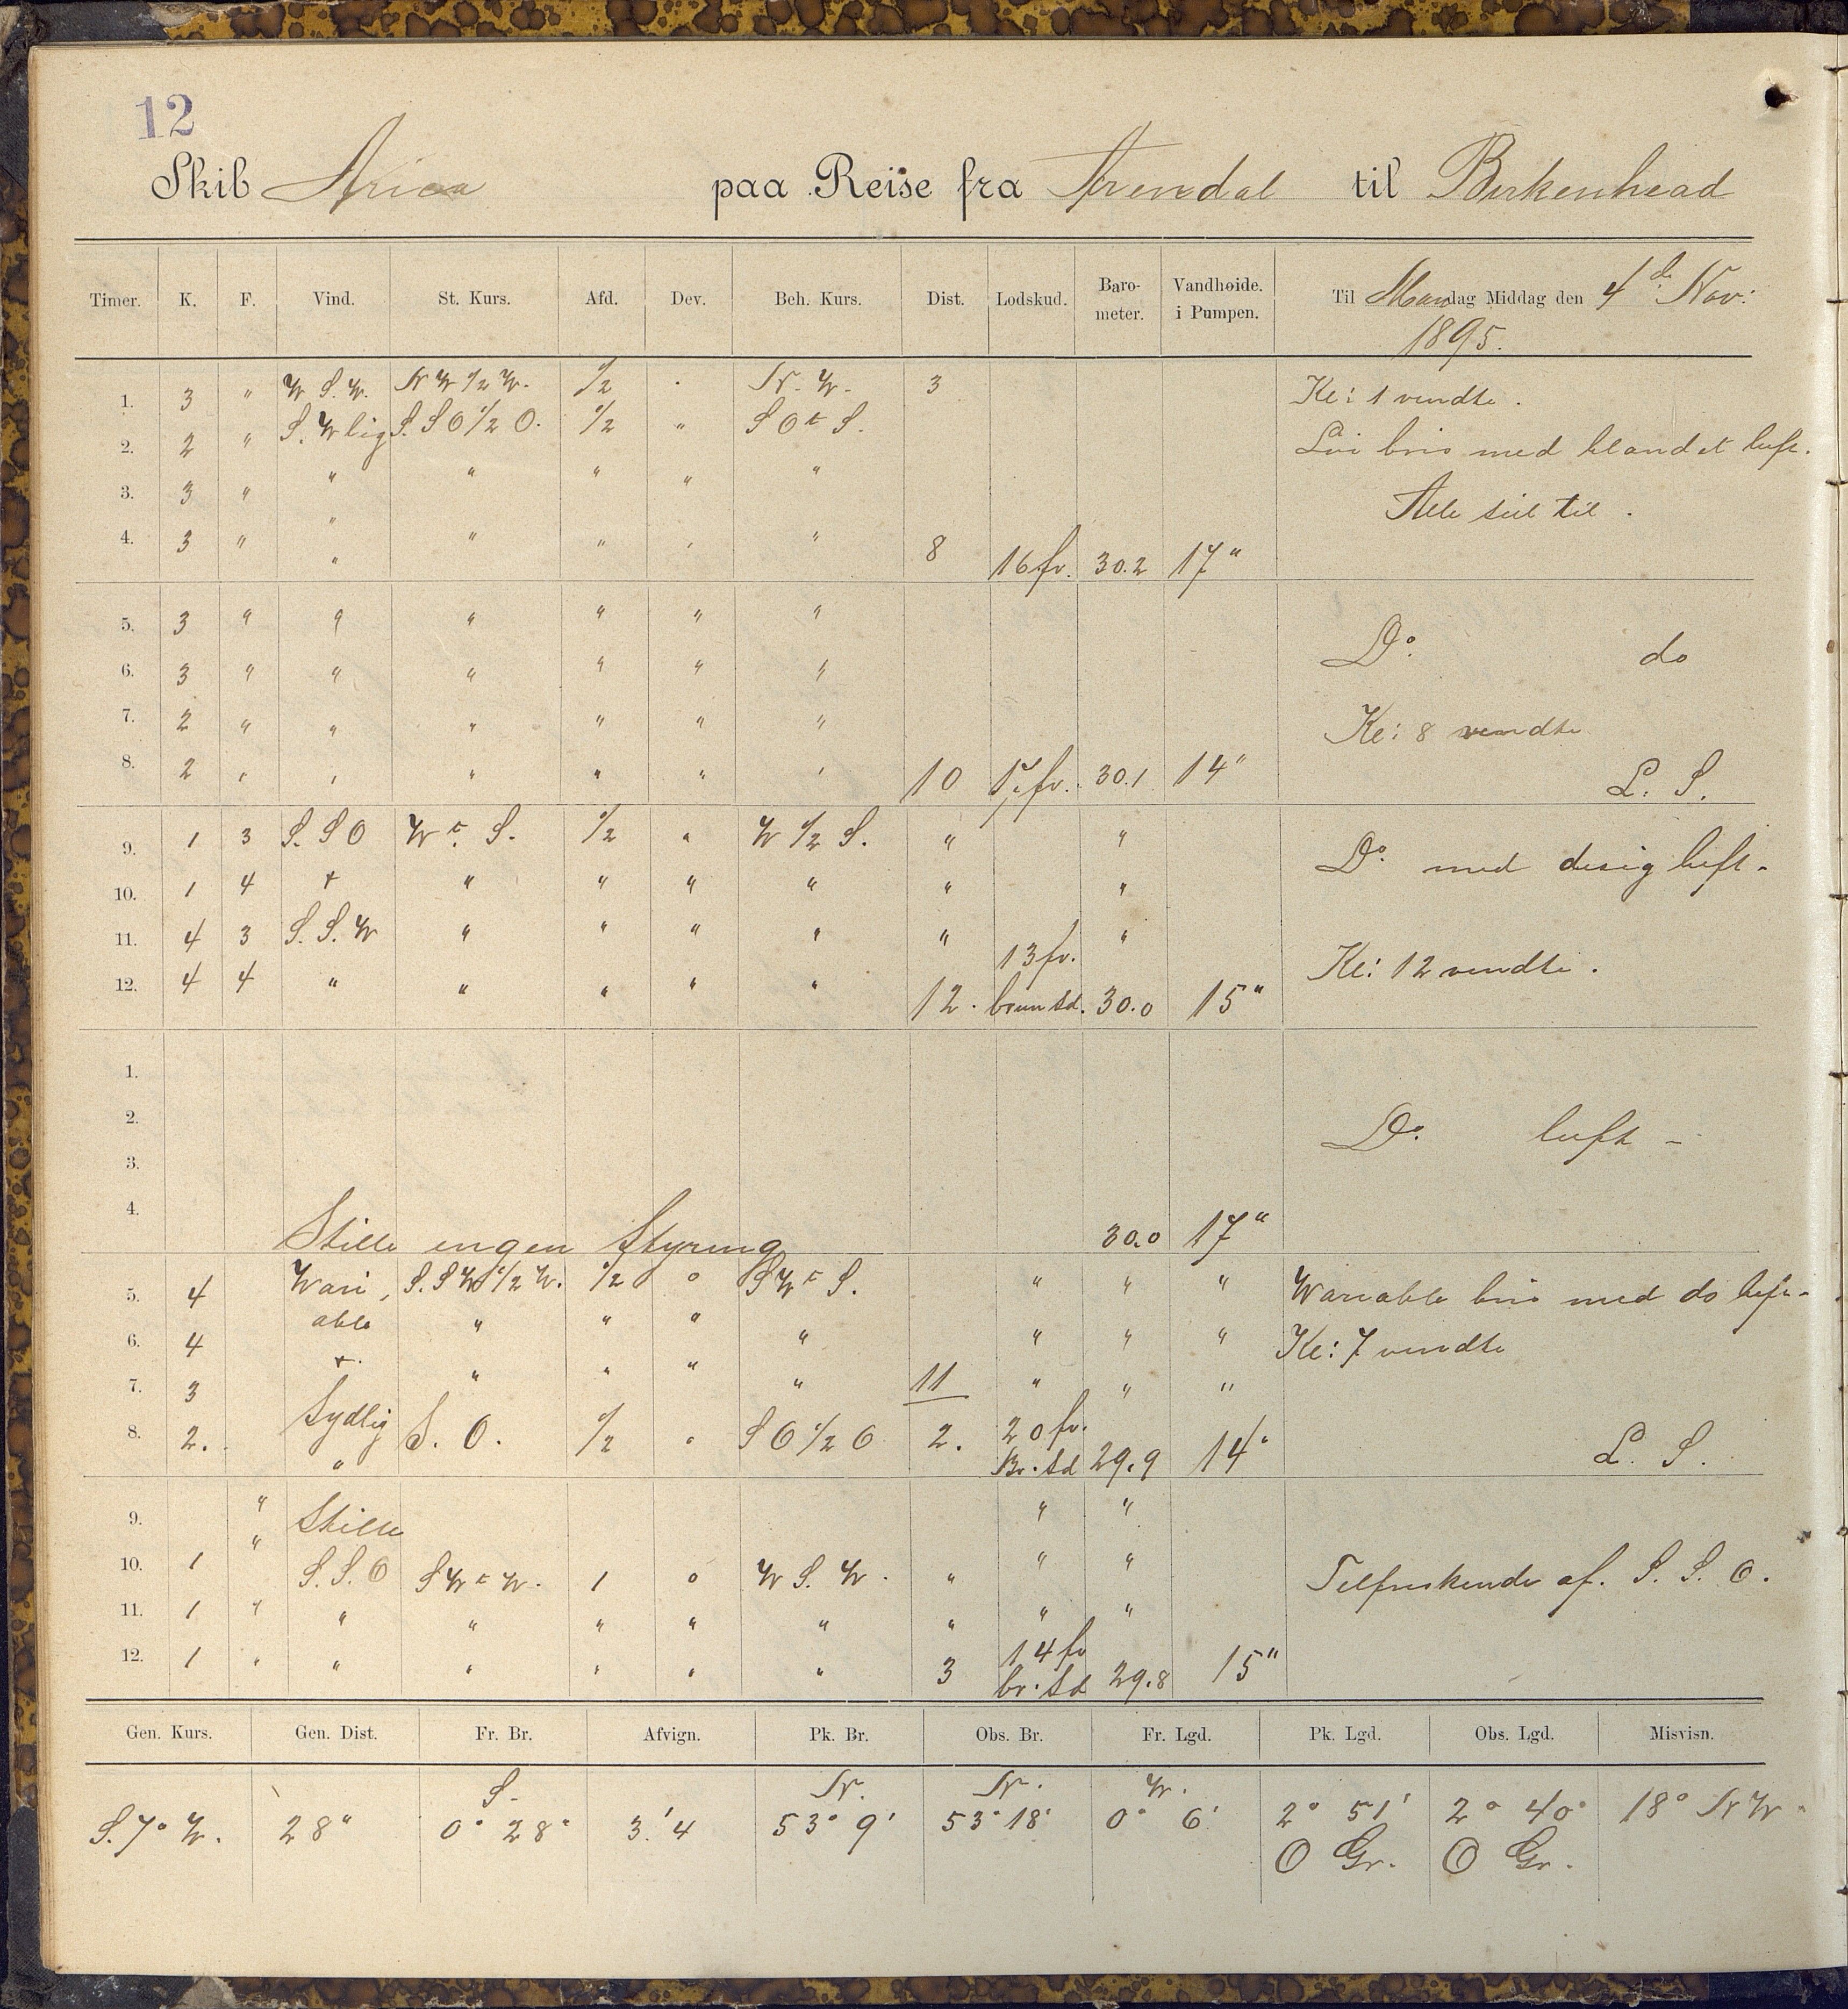 12
Skib Arica paa Reise fra Arendal til Birkenhead
Timer. K. F. Vind. St. Kurs. Afd. Dev. Beh. Kurs. Dist. Lodskud. Baro-meter. Vandhøide. i Pumpen. Til Mandag Middag den 4de Nov: 1895.
1. 3 " W S. W. N W 1/2 W. 1/2 " N. W. 3 Kl: 1 vendte.
2. 2 " S. W lig S. S O 1/2 O. 1/2 " S O t S. Løi bris med blandet luft.
3. 3 " " " " " " Alle seil til.
4. 3 " " " " " " 8 16 fv. 30.2 17"
5. 3 " " " " " " Do. do
6. 3 " " " " " "
7. 2 " " " " " " Kl: 8 vendte
8. 2 " " " " " " 10 17 fv. 30.1 14" L. S.
9. 1 3 S. S O W t. S. 1/2 " W 1/2 S. " " Do. med disig luft -
10. 1 4 + " " " " " "
11. 4 3 S. S. W " " " " " 13 fv. "
12. 4 4 " " " " " 12. brun sd. 30.0 15" Kl: 12 vendte.
1.
2. Do. luft -
3.
4. Stille ingen Styring 30.0 17"
5. 4 Wari, S. S W 1/2 W. 1/2 o S W t S. " " " Wariable bris med do luft -
6. 4 able " " " " " " " Kl: 7 vendte
7. 3 +. " " " " 11 " " "
8. 2. Sydlig S. O. 1/2 " S O 1/2 O 2. 20 fv. Br. Sd 29.9 14" L. S.
9. " Stille " "
10. 1 " S. S. O S W t W. 1 o W S. W. " " " Tilfriskende af. S. S. O.
11. 1 " " " " " " " " "
12. 1 " " " " " " 3 14 fv br. Sd 29.8 15"
Gen. Kurs. Gen. Dist. Fr. Br. Afvign. Pk. Br. Obs. Br. Fr. Lgd. Pk. Lgd. Obs. Lgd. Misvisn.
S. N. N. W.
S. 7° W. 28" 0° 28" 3.'4 53° 9' 53° 18' 0° 6' 2° 51' 2° 40" 18° N W -
O Gr. O Gr.